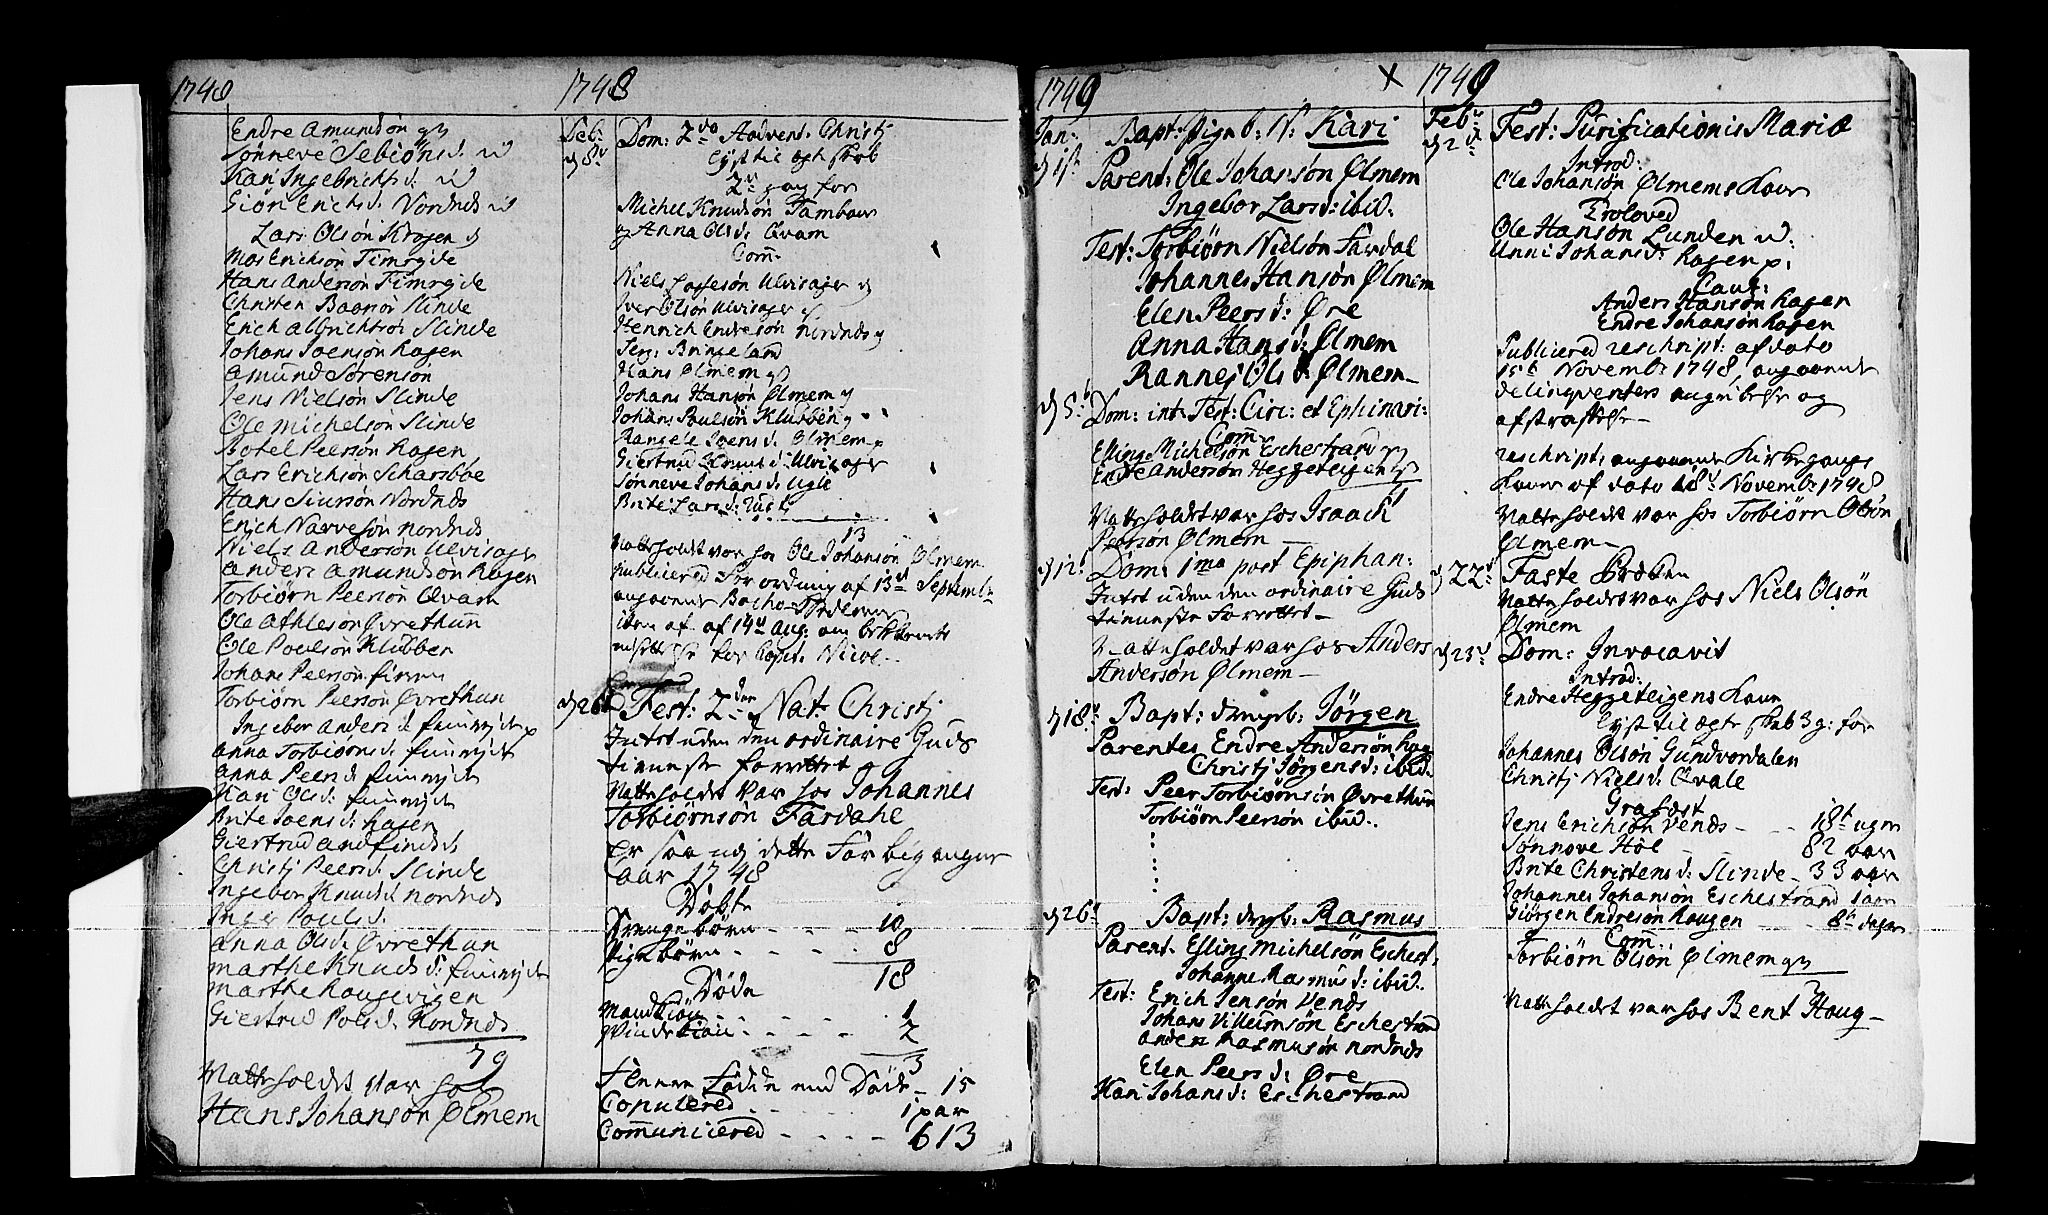 1748
Endre Amundsön
Sönneve Sebiönsd:
Kari Ingebrichtsd:
Giöri Erichsd: Nordnds
Lars Olsön Krogen
Mos Erichsön Timrejde
Hans Andersön Timrejde
Christen Baarsön Slinde
Erich Albrichtsön Slinde
Johans Joensön Hagen
Amund Sørensön
Jens Nielsön Slinde
Ole Michelsön Slinde
Botel Peersön Hagen
Lars Erichsön Scharsboe
Hans Siursön Nordnds
Erich Narvesön Nordnds
Niels Andersön Ulvisager
Anders Amundsön Hagen
Torbiörn Peersön Qvam
Ole Athlesön Øvrethun
Ole Poulsön Klubben
Johans Peersön
Torbiörn Peersön Øvrethun
Ingebor Anders d.
Anna Torbiörnsd:
Anna Peersd:
Kari Olsd:
Brite Joensd: Hagen
Giertrud
Christj Peersd: Slinde
Ingebor Knudsd Nordnds
Inger Poulsd.
Anna Olsd: Øvrethun
Marthe Knudsd:
Marthe Haugevigen
Giertrud Polsd: Nordnds
79
Natte holdet var hos
Hans Johansön Ølmem
1748
Deb:
d 8de Dom: 2do Advent: Christj
Lyst til Egteskab
2den gang for
Michel Knudsön Tambour
og Anna Olsd: Qvam
Com̄
Niels Ulvisager
Iver Olsön Ulvisager
Henrich Endresön Nordnds
Serg: Bringeland
Hans Ølmem
Johans Hansön Ølmem
Johans Poulsön Klubben
Rangele Joensd: Ølmem
Giertrud Knudsd: Ulvisager
Sönneve Johansd: Ugle
Brite Larsd:
13
Natte holdet var hos Ole Johansön Ølmem
publicered Forordning af 13d Septembr
angaaende
item af 14d Aug: om
for Capit:
d 26d Fest: 2den Nat: Christj
Intet uden den ordinaire Guds
tienneste forrettet
Natteholdet var hos Johannes
Torbiörnsön Fardahl
Er saa udj dette Forbigangne
Aar 1748
Döbte
Drengebörn - - - 10
Pigebörn - - - - 8
18
Döde
Mandkiön - - - 1
Qvindekiön - - - - 2
3
Flere Födde end Döde - 15
Copulered - - - 1 par
Communicered - - - - 613
1749
Jan:
d 1st Bapt: pigeb: N: Kari
Parent: Ole Johansön Ølmem
Ingebor Larsd: ibid:
Test: Torbiörn Nielsön Fardal
Johannes Hansön Ølmem
Elen Peersd: Øre
Anna Hansd: Ølmem
Rannej Olsd: Ølmem
d 5t Dom: int: Fest: Circ: et Ephinari:
Com̄
Elling Michelsön Eschestrand
Endre Andersön Heggeteigen
Natteholdet var hos Isaach
Peersön Ølmem
d 12 Dom: 1ma post Epiphan:
Intet uden den ordinaire Guds
tienneste forrettet
Natteholdet var hos Anders
Andersön Ølmem
d 18d Bapt: drengb: Jörgen
Parentes Endre Andersön
Christj Jörgensd: ibid.
Test: Peer Torbiörnsön Øvrethun
Torbiörn Peersön ibid.
d 26d Bapt: drengb: Rasmus
Parent: Elling Michelsön Eschest:
Johanne Rasmusd: ibid.
Test: Erich Jensön Vends
Johans Villumsön Eschestrand
Anders Rasmusön Nordnds
Elen Peersd: Øre
Kari Johansd: Eschestrand
X 1749
Feb:
d 2d Fest: Purificationis Mariæ
Introd:
Ole Johansön Ølmems Kone
Troloved
Ole Hansön Lunden
Unni Johansd: Hagen
Caut:
Anders Hansön Hagen
Endre Johansön Hagen
Publicered rescript: af dato
15t Novembr 1748, angaaende
delinqventers angribelse og
afstraffelse
rescript: angaaende Kirkegangs
Koner af dato 18d Novembr 1748
Natteholdet var hos Torbiörn Olsön
Ølmem
d 22d Faste Pröken
Natteholdet var hos Niels Olsön
Ølmem
d 23d Dom: Invocavit
Introd:
Endre Heggeteigens Kone
Lyst til Egteskab 3 g: for
Johannes Olsön Gundvordalen
Christj Nielsd: Qvale
Grafæst
Jens Erichsön Vends - - - 18t ugen
Sönnove Höl 82 aar
Brite Christensd: Slinde - 33 aar
Johannes Johansön Eschestrand 1 aar
Giörgen Endresön Haugen - - 8t dager
Com̄:
Torbiörn Olsön Ølmem
Natteholdet var hos Bent Houg